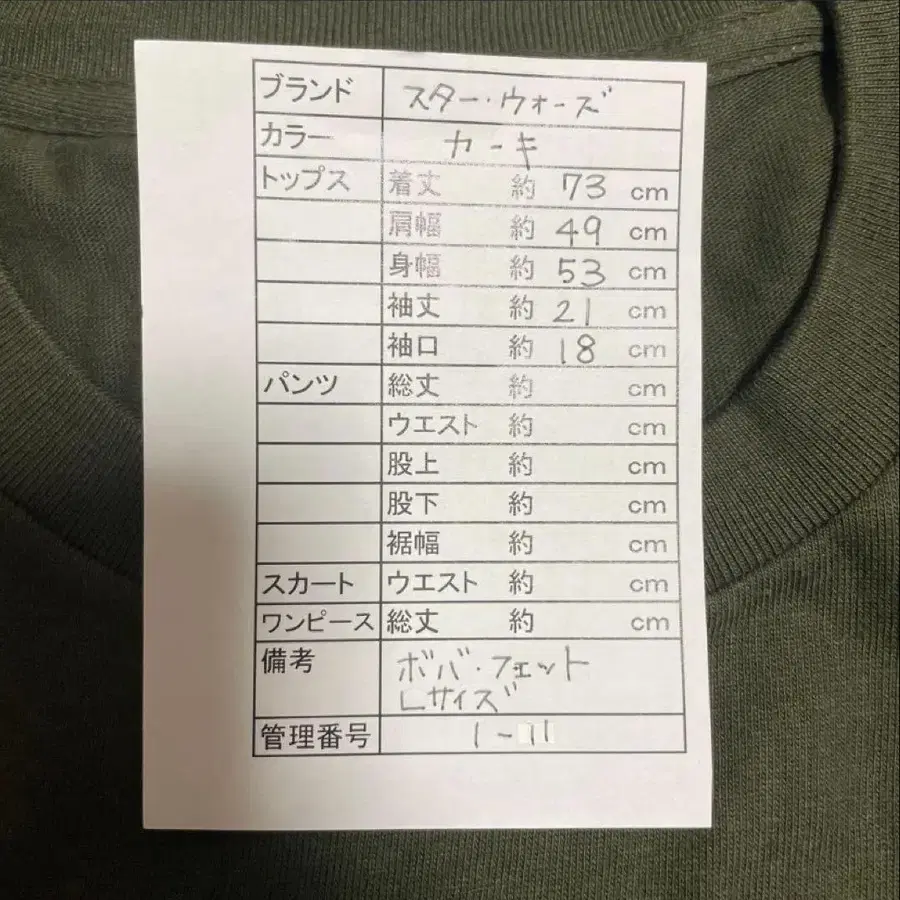 ブランド スター・ウォーズ
カラー カーキ
トップス 着丈 約 73 cm
肩幅 約 49 cm
身幅 約 53 cm
袖丈 約 21 cm
袖口 約 18 cm
パンツ 総丈 約 cm
ウエスト 約 cm
股上 約 cm
股下 約 cm
裾幅 約 cm
スカート ウエスト 約 cm
ワンピース 総丈 約 cm
備考 ボバ・フェット
Lサイズ
管理番号 1-11